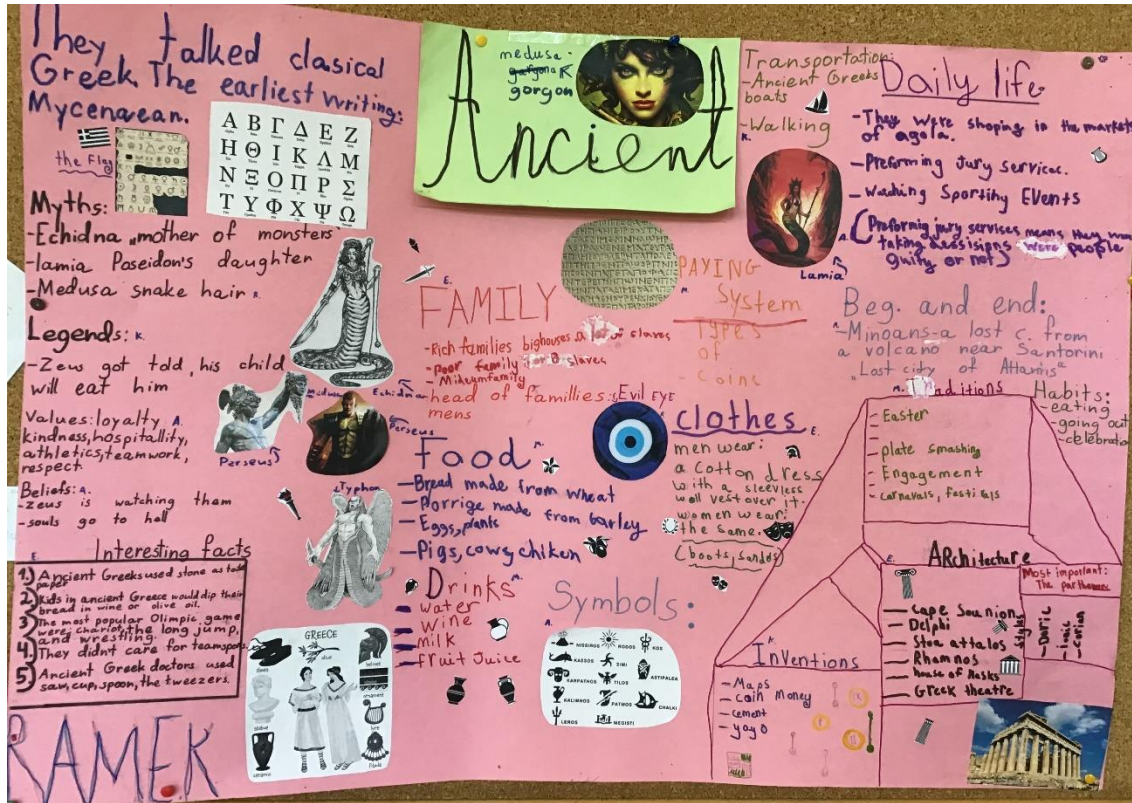 They talked clasical
Greek. The earliest writing:
Mycenaean.
the Flag
Α Β Γ Δ Ε Ζ
Η Θ Ι Κ Λ Μ
Ν Ξ Ο Π Ρ Σ
Τ Υ Φ Χ Ψ Ω
Myths:
-Echidna „mother of monsters
-lamia Poseidon's daughter
-Medusa snake hair K.
Legends: K.
-Zeus got told, his child
will eat him
Values: loyalty A.
kindness, hospitallity,
athletics, teamwork,
respect
Beliefs: A.
-zeus is watching them
-souls go to hell
Medusa
Echidna
Perseus
Perseus
Typhon
E.
Interesting facts
1.) Ancient Greeks used stone as
paper
2.) Kids in ancient Greece would dip their
bread in wine or olive oil.
3) The most popular Olimpic game
were: chariot, the long jump,
and wrestling.
4.) They didnt care for teamsports
5) Ancient Greek doctors used
saw, cup, spoon, the tweezers.
RAMEK
medusa
gorgon
Ancient
E.
FAMILY
-Rich families bighouses a slaves
-poor family slaves
-Mideumfamily
-head of famillies:
mens
Evil EYE
Food
-Bread made from wheat
-Porrige made from barley
-Eggs, plants
-Pigs, cows, chiken
Drinks
- water
- wine
- milk
- fruit juice
GREECE
olive
helmet
ornament
lyre
statue
PAYING
System
Types
of
- coins
clothes E.
men wear:
a cotton dress
with a sleevless
woll vest over it.
women wear:
the same.
(boots, sandls)
Symbols:
A.
NISSIROS
RODOS
KOS
KASSOS
SIMI
ASTIPALEA
KARPATHOS
TILOS
KALIMNOS
PATMOS
CHALKI
LEROS
MEGISTI
Transportation:
-Ancient Greeks
boats
-Walking
K.
Lamia
Daily life
-They were shoping in the markets
of agola.
-Preforming Jury services.
-Waching Sportihy EVents
(Preforming jury services means they were
taking dessisions were people
guilty or not)
Beg. and end:
-Minoans-a lost c. from
a volcano near Santorini
„Lost city of Atlantis"
aditions
- Easter
-
- plate smashing
- Engagement
- carnavals, festivals
Habits:
-eating
-going out
-celebration
E.
ARchitecture
- Cape Sounion
- Delphi
- Stoa attalos
- Rhamnos
- house of Masks
- Greek theatre
Most important:
The parthenon
styles
-Doric
-ionic
-Corian
K.
Inventions
- Maps
- coin Money
- cement
- yoyo